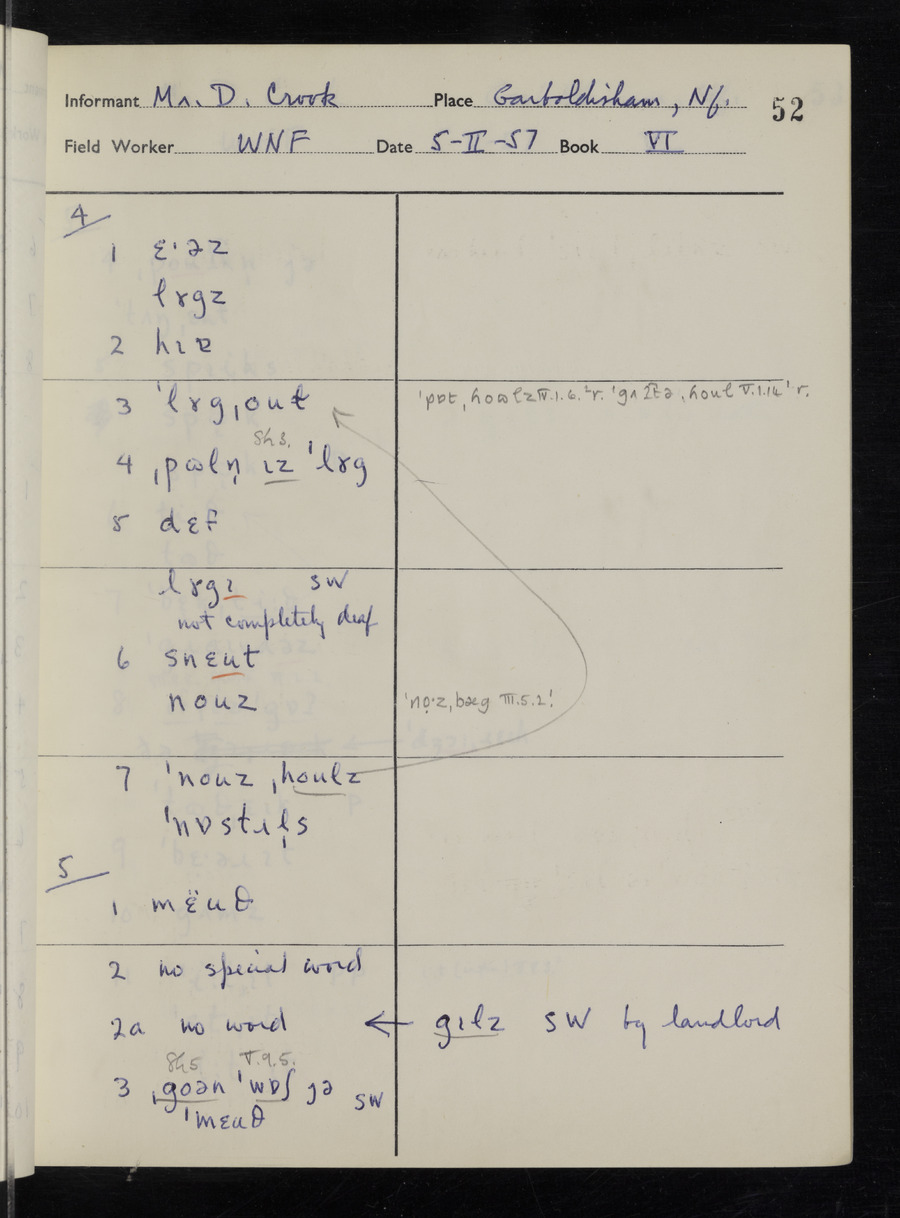 Informant Mr. D. Crook Place Garboldisham, Nf. 52
Field Worker WNF Date 5-II-57 Book VI
4
1 ɛ·əz
lɤgz
2 hɪɐ
3 ˈlɤgˌout
4 ˌpωlṇ ɪz ˈlɤg
8h3.
5 dɛf
lɤgɪ SW
not completely deaf
6 snɛut
nouz
ˈnọ·z,bæg III.5.2!
7 ˈnouz ˌhoulz
ˈnɒstɹɪl̩s
5
1 mɛ̈uθ
2 no special word
2a no word ← gɪlz SW by landlord
8h5 V.9.5.
3 ˌgoən ˈwɒʃ jə SW
ˈmɛuθ